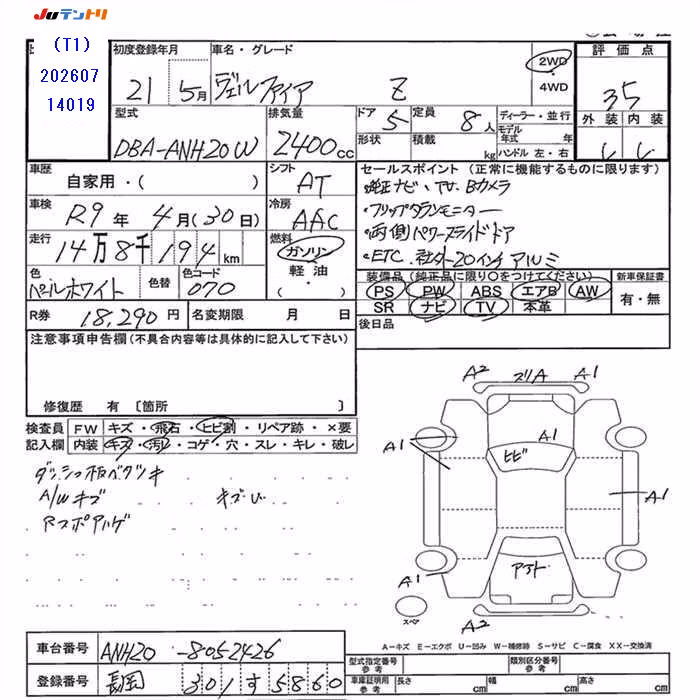 Juテントリ
(T1)
202607
14019
初度登録年月
21 5月
車名・グレード
ヴェルファイア Z
2WD
・
4WD
評価点
3.5
外装 内装
型式
DBA-ANH20W
排気量
2400cc
ドア
5
定員
8人
形状
積載
kg
ディーラー・並行
モデル年式 年
ハンドル 左・右
車歴
自家用・( )
シフト
AT
車検
R9年 4月(30日)
冷房
AAC
走行
14万8千194km
燃料
ガソリン
軽油
・( )
色
パールホワイト
色替
色コード
070
R券 18,290円
名変期限 月 日
セールスポイント(正常に機能するものに限ります)
・純正ナビ、TV、Bカメラ
・フリップダウンモニター
・両側パワースライドドア
・ETC、社外20インチアルミ
装備品(純正品に限り〇をつけてください)
PS PW ABS エアB AW
SR ナビ TV 本革
新車保証書
有・無
後日品
注意事項申告欄(不具合内容等は具体的に記入して下さい)
修復歴 有 〔箇所 〕
検査員
記入欄
FW キズ・飛石・ヒビ割・リペア跡・×要
内装 キズ・汚レ・コゲ・穴・スレ・キレ・破レ
A/Wキズ
A2 ズリA A1
A1 ヒビ A1
A1
A1
A2
スペア
A-キズ E-エクボ U-凹み W-補修跡 S-サビ C-腐食 XX-交換済
車台番号 ANH20-8052426
登録番号 長岡 301 す 5860
型式指定番号
参考
類別区分番号
車庫証明用
参考
長さ cm 幅 cm 高さ cm